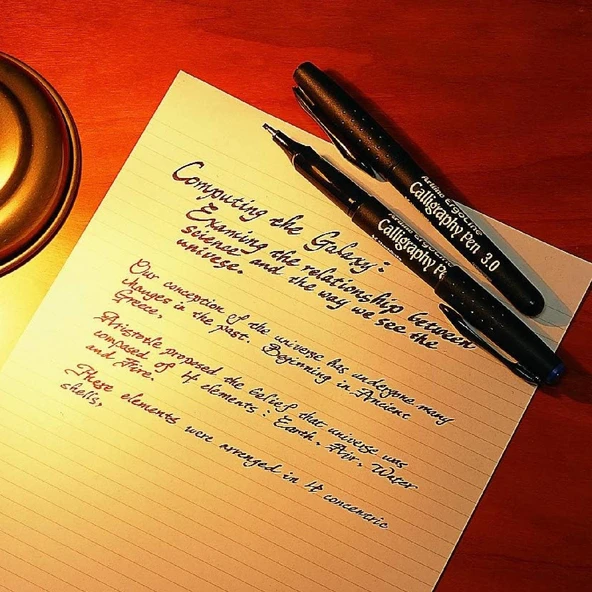 Computing the Galaxy:
Examing the relationship between
science and the way we see the
universe.
Our conception of the universe has undergone many
changes in the past. Beginning in Ancient
Greece.
Aristotle proposed the belief that universe was
composed of 4 elements: Earth, Air, Water
and Fire.
These elements were arranged in 4 concentric
shells,
Artline Ergoline
Calligraphy Pen 3.0
Artline Ergoline
Calligraphy Pe